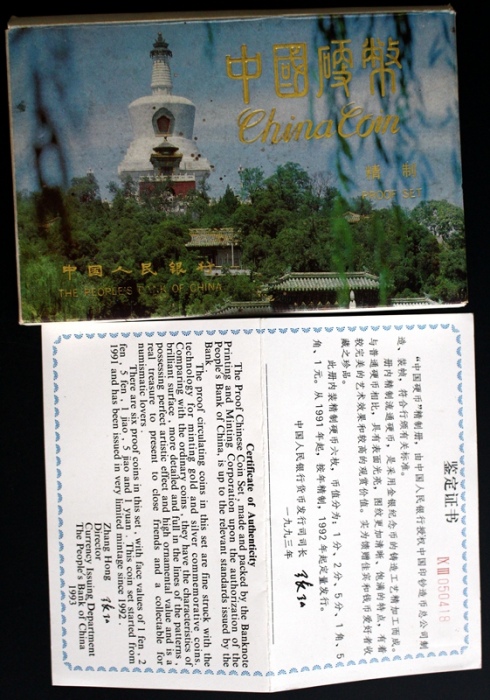 中國硬幣
China Coin
精制
PROOF SET
中國人民銀行
THE PEOPLE'S BANK OF CHINA
鉴定证书
050418
“中国硬币”精制册，由中国人民银行授权中国印钞造币总公司制
造、装帧，符合行颁有关标准。
册内精制流通硬币，是采用金银纪念币的铸造工艺精加工而成。
与普通硬币相比，具有表面光亮，图纹更加清晰、饱满的特点，有着
较完美的艺术效果和较高的观赏价值，实为馈赠佳宾和钱币爱好者收
藏之珍品。
此册内装精制硬币六枚，币值分为：1分、2分、5分、1角、5
角、1元。从1991年起，按年精制，1992年起定量发行。
中国人民银行货币发行司司长
一九九三年
Certificate of Authenticity
The Proof Chinese Coin Set, made and packed by the Banknote
Printing and Minting Corporation upon the authorization of the
People's Bank of China, is up to the relevant standards issued by the
Bank.
The proof circulating coins in this set are fine struck with the
technology for minting gold and silver commemorative coins.
Comparing with the ordinary coins, they have the characteristics of
brilliant surface, more detailed and full in the lines of the patterns,
possessing perfect artistic effect and high ornamental value and is a
real treasure to present to close friends and a collectable for
numismatic lovers.
There are six proof coins in this set, with face values of 1 fen, 2
fen, 5 fen, 1 jiao, 5 jiao and 1 yuan. This coin set started from
1991 and has been issued in very limited mintage since 1992.
Zhang Hong
Director
Currency Issuing Department
The People's Bank of China
1993